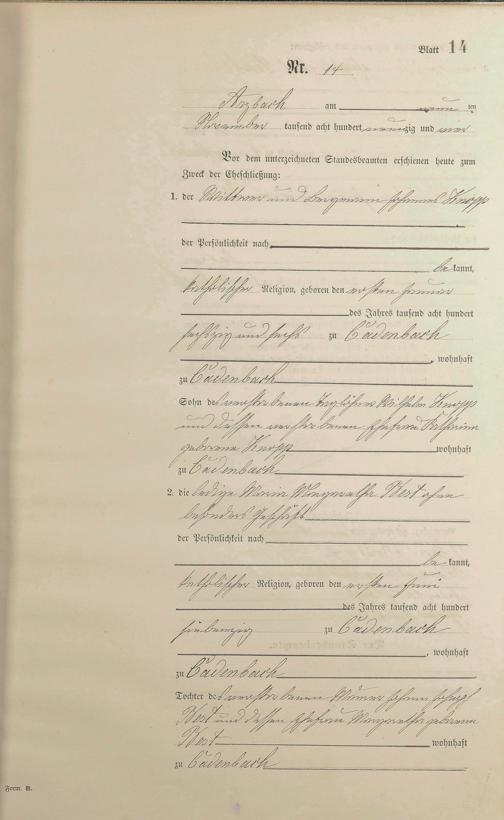 Blatt 14
Nr. 14
Arzbach am neun ten
November tausend acht hundert neunzig und vier
Vor dem unterzeichneten Standesbeamten erschienen heute zum
Zweck der Eheschließung:
1. der Wittwer und Bergmann Johannes Knopp
der Persönlichkeit nach
be kannt,
katholischer Religion, geboren den ersten Januar
des Jahres tausend acht hundert
sechszig und sechs zu Cadenbach
, wohnhaft
zu Cadenbach
Sohn des verstorbenen Taglöhner Wilhelm Knopp
und dessen verstorbenen Ehefrau Katharina
geborene Knopp wohnhaft
zu Cadenbach
2. die ledige Maria Margaretha Best ohne
besonders Geschäft
der Persönlichkeit nach
be kannt,
katholischer Religion, geboren den ersten Juni
des Jahres tausend acht hundert
siebenzig zu Cadenbach
, wohnhaft
zu Cadenbach
Tochter des verstorbenen Johann Joseph
Best und dessen Ehefrau Margaretha geborene
Best wohnhaft
zu Cadenbach
Form. B.